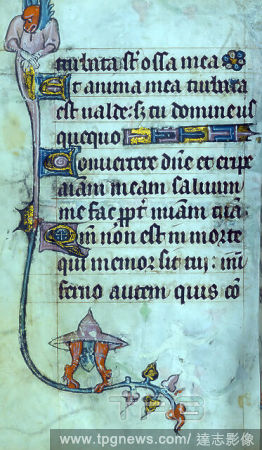 turbata st ossa mea
Et anima mea turbata
est ualde: sz tu domineus
quequo
Conuertere dne et eripe
aiam meam saluum
me fac ppt miam tua
Qm non est in morte
qui memor sit tui: in
ferno autem quis co
TPG
www.tpgnews.com/ 達志影像